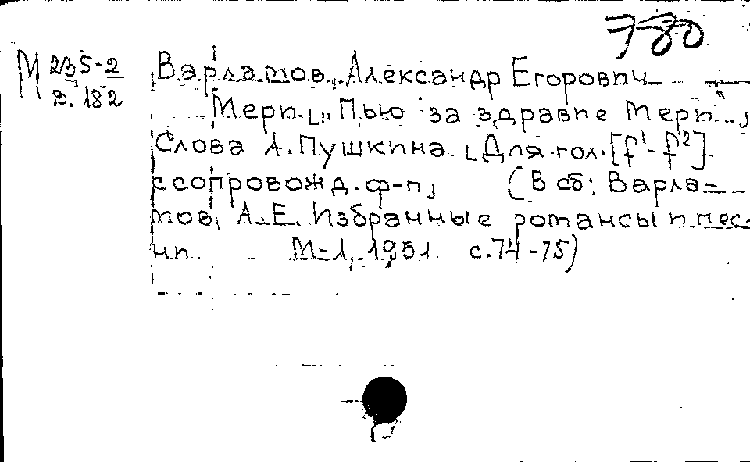 780
М 235-2
2. 182
Варламов, Александр Егорович
Мери „Пью за здравие Мери...,
Слова А. Пушкина. Для гол. [f¹-f²]
с сопровожд. ф-п., (В сб: Варла-
мов, А.Е. Избранные романсы и пес-
ни. М-Л, 1951. с.74-75)